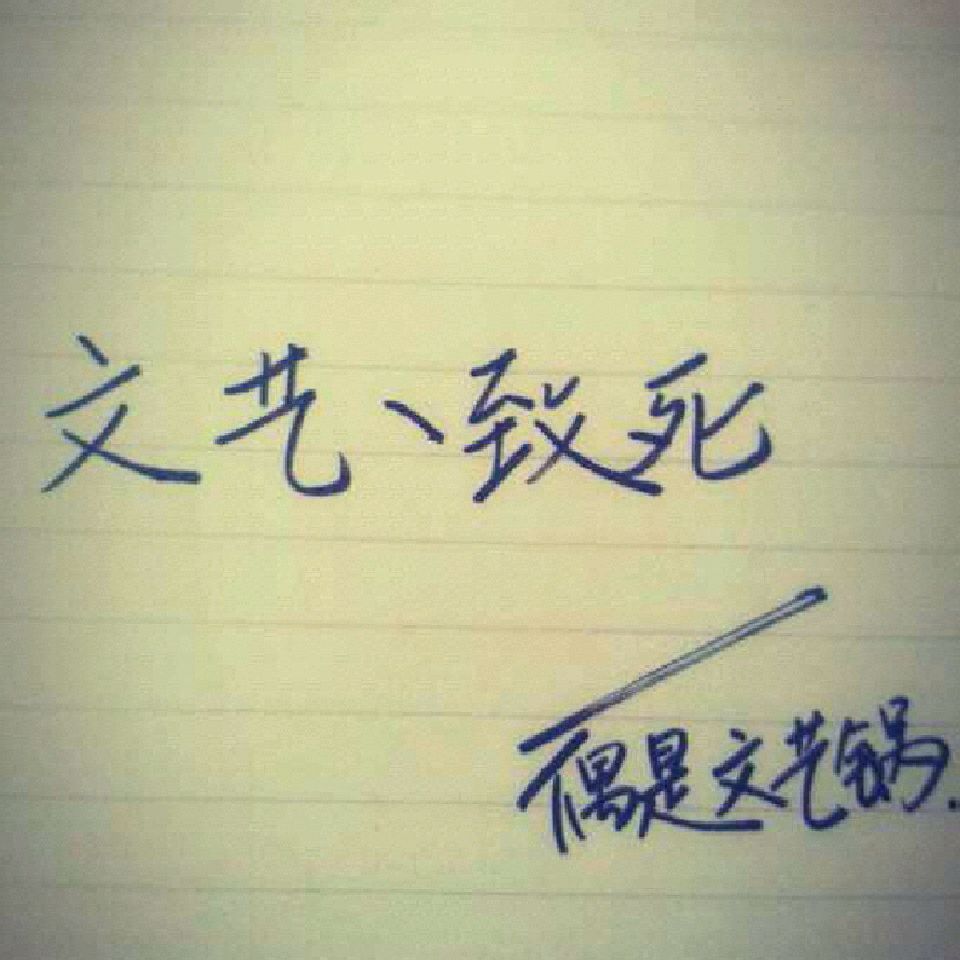 文艺、致死
偶是文艺锅.